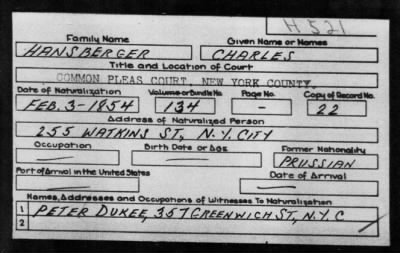 H 521
Family Name Given Name or Names
HANSBERGER CHARLES
Title and Location of Court
COMMON PLEAS COURT, NEW YORK COUNTY.
Date of Naturalization Volume or Bundle No. Page No. Copy of Record No.
FEB. 3-1854 134 - 22
Address of Naturalized Person
255 WATKINS ST, N.Y. CITY
Occupation Birth Date or Age Former Nationality
— — PRUSSIAN
Port of Arrival in the United States Date of Arrival
— —
Names, Addresses and Occupations of Witnesses To Naturalization
1 PETER DUKEE, 357 GREENWICH ST, N.Y.C
2